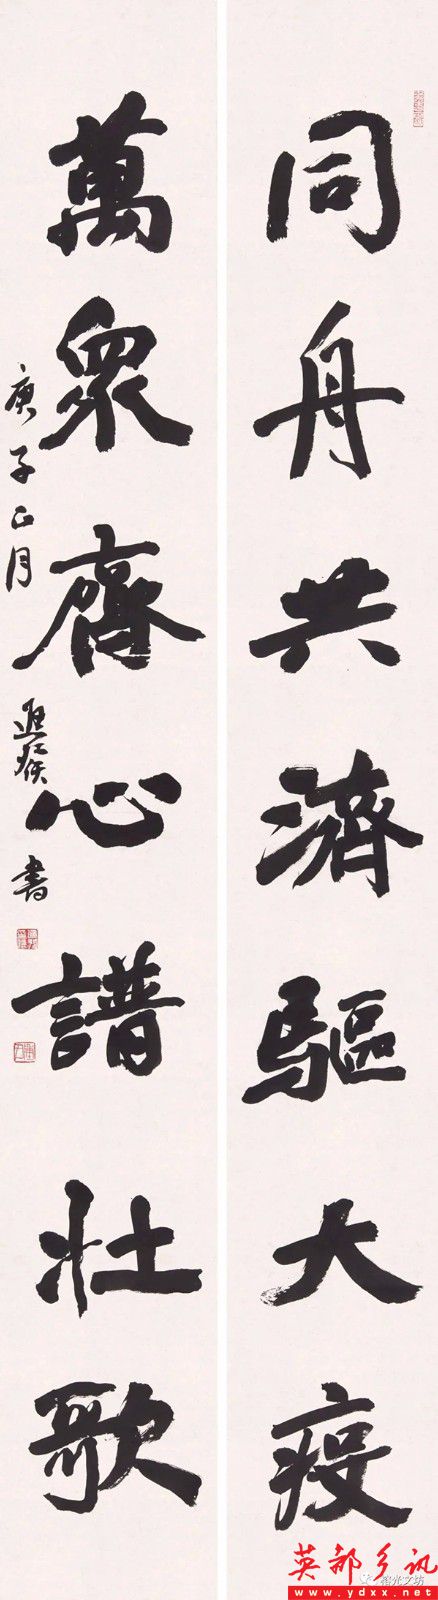 同舟共濟驅大疫
萬衆齊心譜壯歌
庚子正月
書
英都乡讯
www.ydxx.net